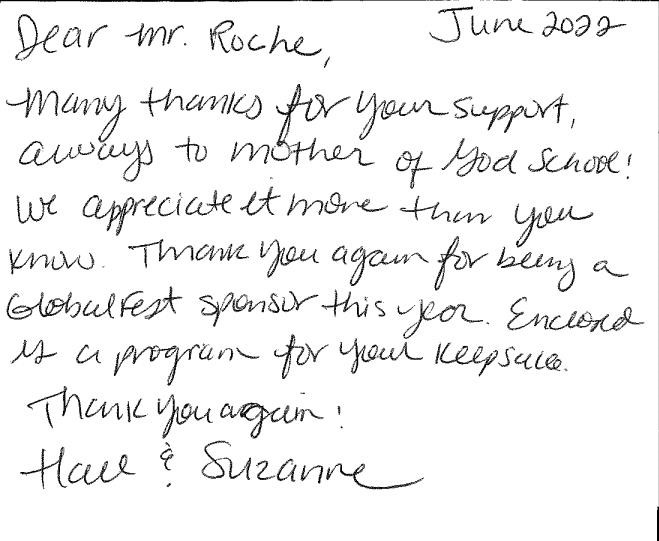 June 2022
Dear Mr. Roche,
Many thanks for your support,
always to Mother of God School!
We appreciate it more than you
know. Thank you again for being a
GlobalFest sponsor this year. Enclosed
is a program for your keepsake.
Thank you again!
& Suzanne